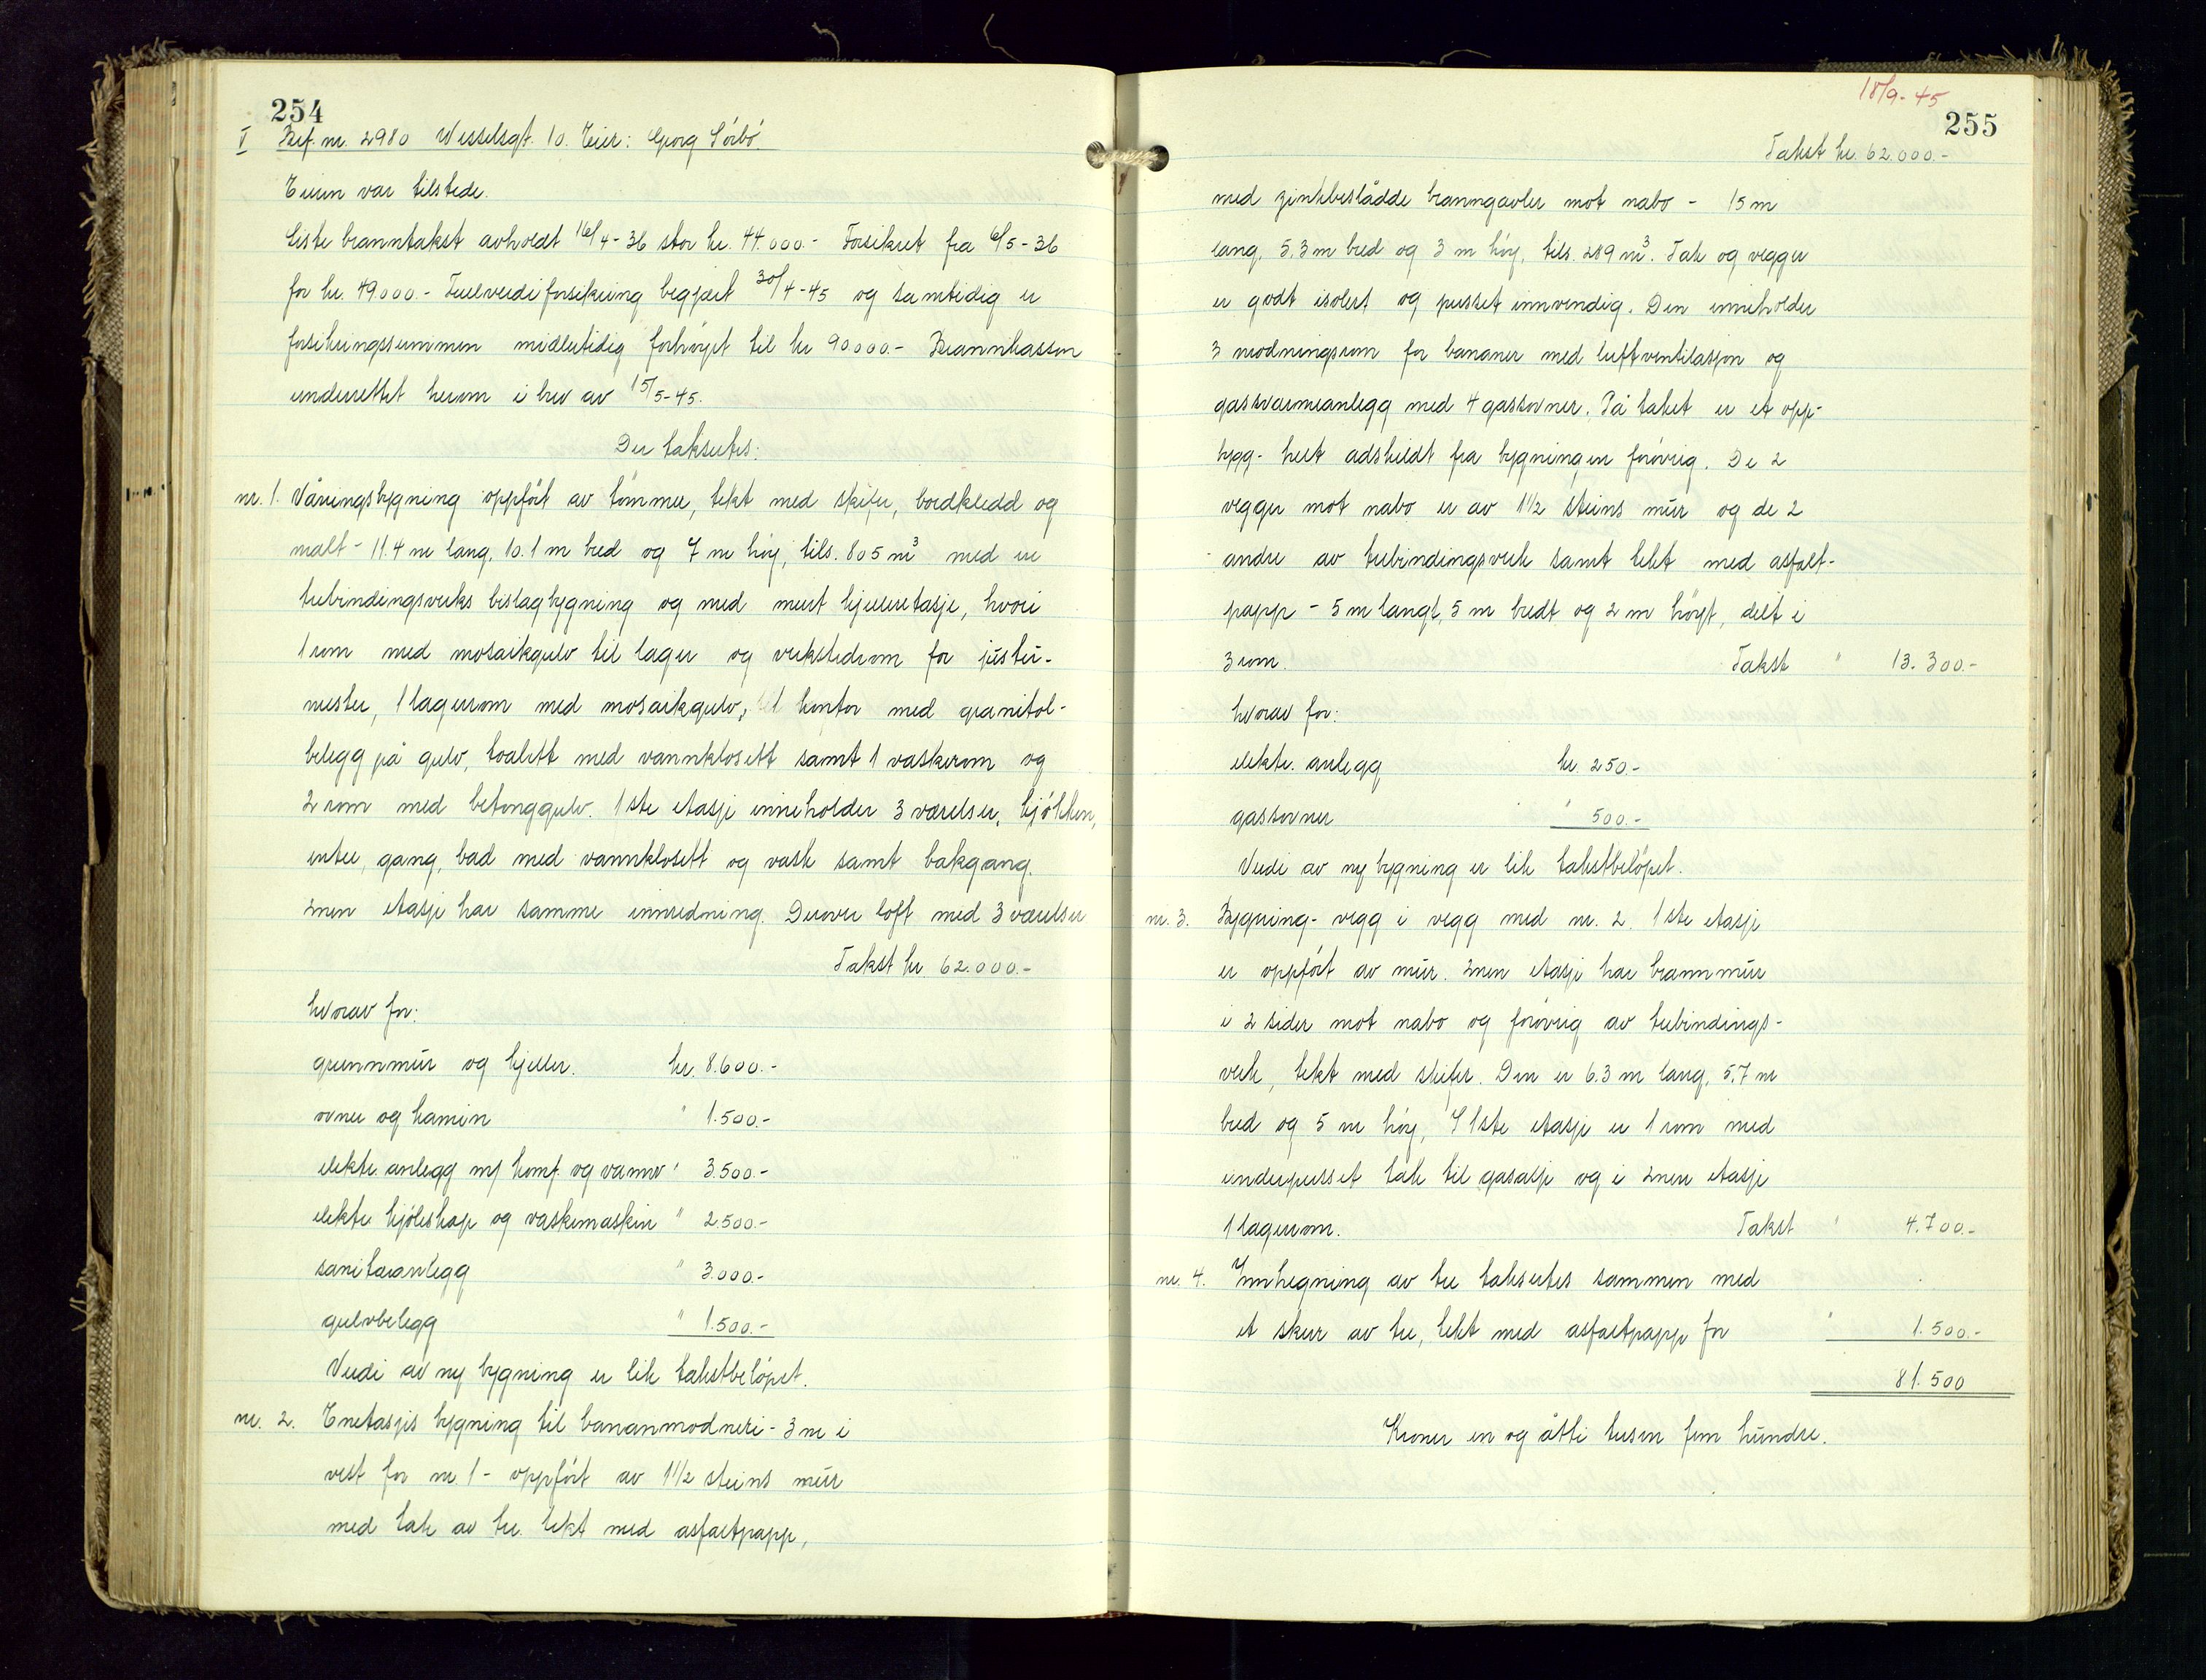 254
V Bref. nr. 2980 Wesselsgt. 10. Eier: Georg Sörbö.
Eieren var tilstede.
Siste branntakst avholdt 16/4-36 stor kr. 44.000.- Forsikret fra 6/5-36
for kr. 49.000.- Fullverdiforsikring begjært 30/4-45 og samtidig er
forsikringssummen midlertidig forhöyet til kr 90000.- Brannkassen
underrettet herom i brev av 15/5-45.
Der takseres:
nr. 1. Våningsbygning oppfört av tömmer, tekt med skifer, bordkledd og
malt - 11.4 m lang, 10.1 m bred og 7 m höy, tils. 805 m³ med en
trebindingsverks bislagbygning og med muret kjelleretasje, hvori
1 rom med mosaikgulv til lager og verkstedrom for juster-
mester, 1 lagerrom med mosaikgulv, 1 kontor med granitol-
belegg på gulv, toalett med vannklosett samt 1 vaskerom og
2 rom med betonggulv. 1ste etasje inneholder 3 værelser, kjökken,
entre, gang, bad med vannklosett og vask samt bakgang.
2nen etasje har samme innredning. Derover loft med 3 værelser
Takst kr. 62.000.-
hvorav for:
grunnmur og kjeller. kr. 8.600.-
ovner og kamin " 1.500.-
elektr. anlegg m/ komf. og varmv " 3.500.-
elektr. kjöleskap og vaskemaskin " 2.500.-
sanitæranlegg " 3.000.-
gulvbelegg " 1.500.-
Verdi av ny bygning er lik takstbelöpet.
nr. 2. Enetasjes bygning til bananmodneri - 3 m i
vest for nr. 1 - oppfört av 1 1/2 steins mur
med tak av tre tekt med asfaltpapp,
18/9-45
255
Takst kr. 62.000.-
med zinkbeslådde branngavler mot nabo - 15 m
lang, 5,3 m bred og 3 m höy, tils. 289 m³. Tak og vegger
er godt isolert og pusset innvendig. Den inneholder
3 modningsrom for bananer med luftventilasjon og
gassvarmeanlegg med 4 gassovner. På taket er et opp-
bygg - helt adskildt fra bygningen forövrig. De 2
vegger mot nabo er av 1 1/2 steins mur og de 2
andre av trebindingsverk samt tekt med asfalt-
papp - 5 m langt, 5 m bredt og 2 m höyt, delt i
3 rom. Takst " 13.300.-
hvorav for:
elektr. anlegg kr. 250.-
gassovner " 500.-
Verdi av ny bygning er lik takstbelöpet.
nr. 3. Bygning - vegg i vegg med nr. 2. 1ste etasje
er oppfört av mur. 2nen etasje har brannmur
i 2 sider mot nabo og forövrig av trebindings-
verk, tekt med skifer. Den er 6.3 m lang, 5,7 m
bred og 5 m höy, I 1ste etasje er 1 rom med
underpusset tak til garasje og i 2nen etasje
1 lagerrom. Takst " 4.700.-
nr. 4. Innhegning av tre takseres sammen med
et skur av tre, tekt med asfaltpapp for " 1.500.-
81.500
Kroner en og åtti tusen fem hundre.